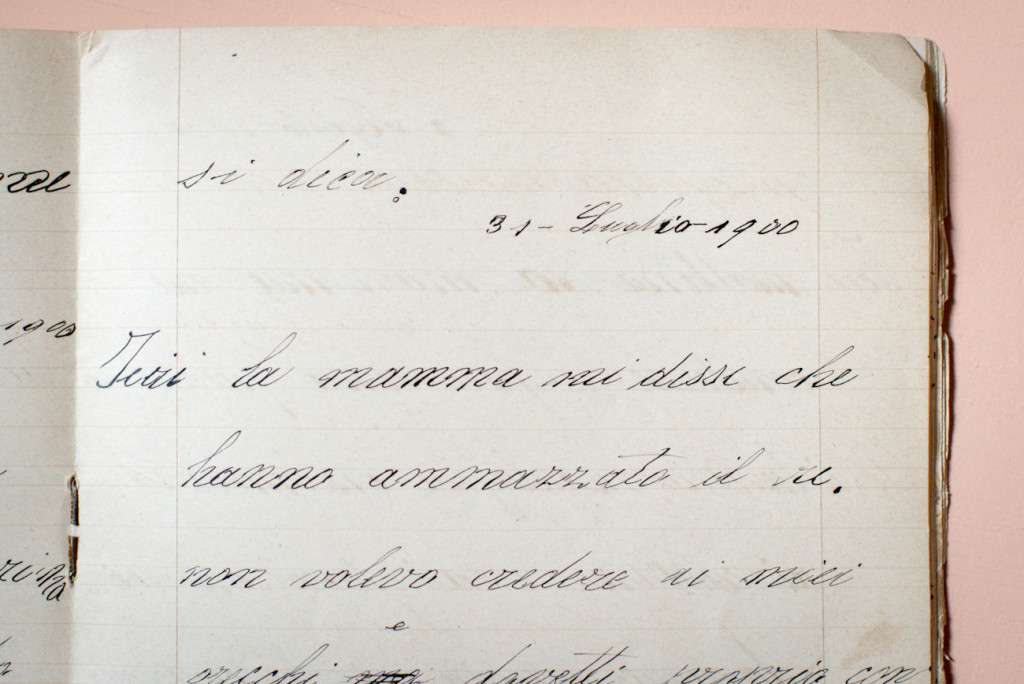 si dica.
31 - Luglio 1900
1900
Ieri la mamma mi disse che
hanno ammazzato il re.
non volevo credere ai miei
e
orecchi dovetti proprio con